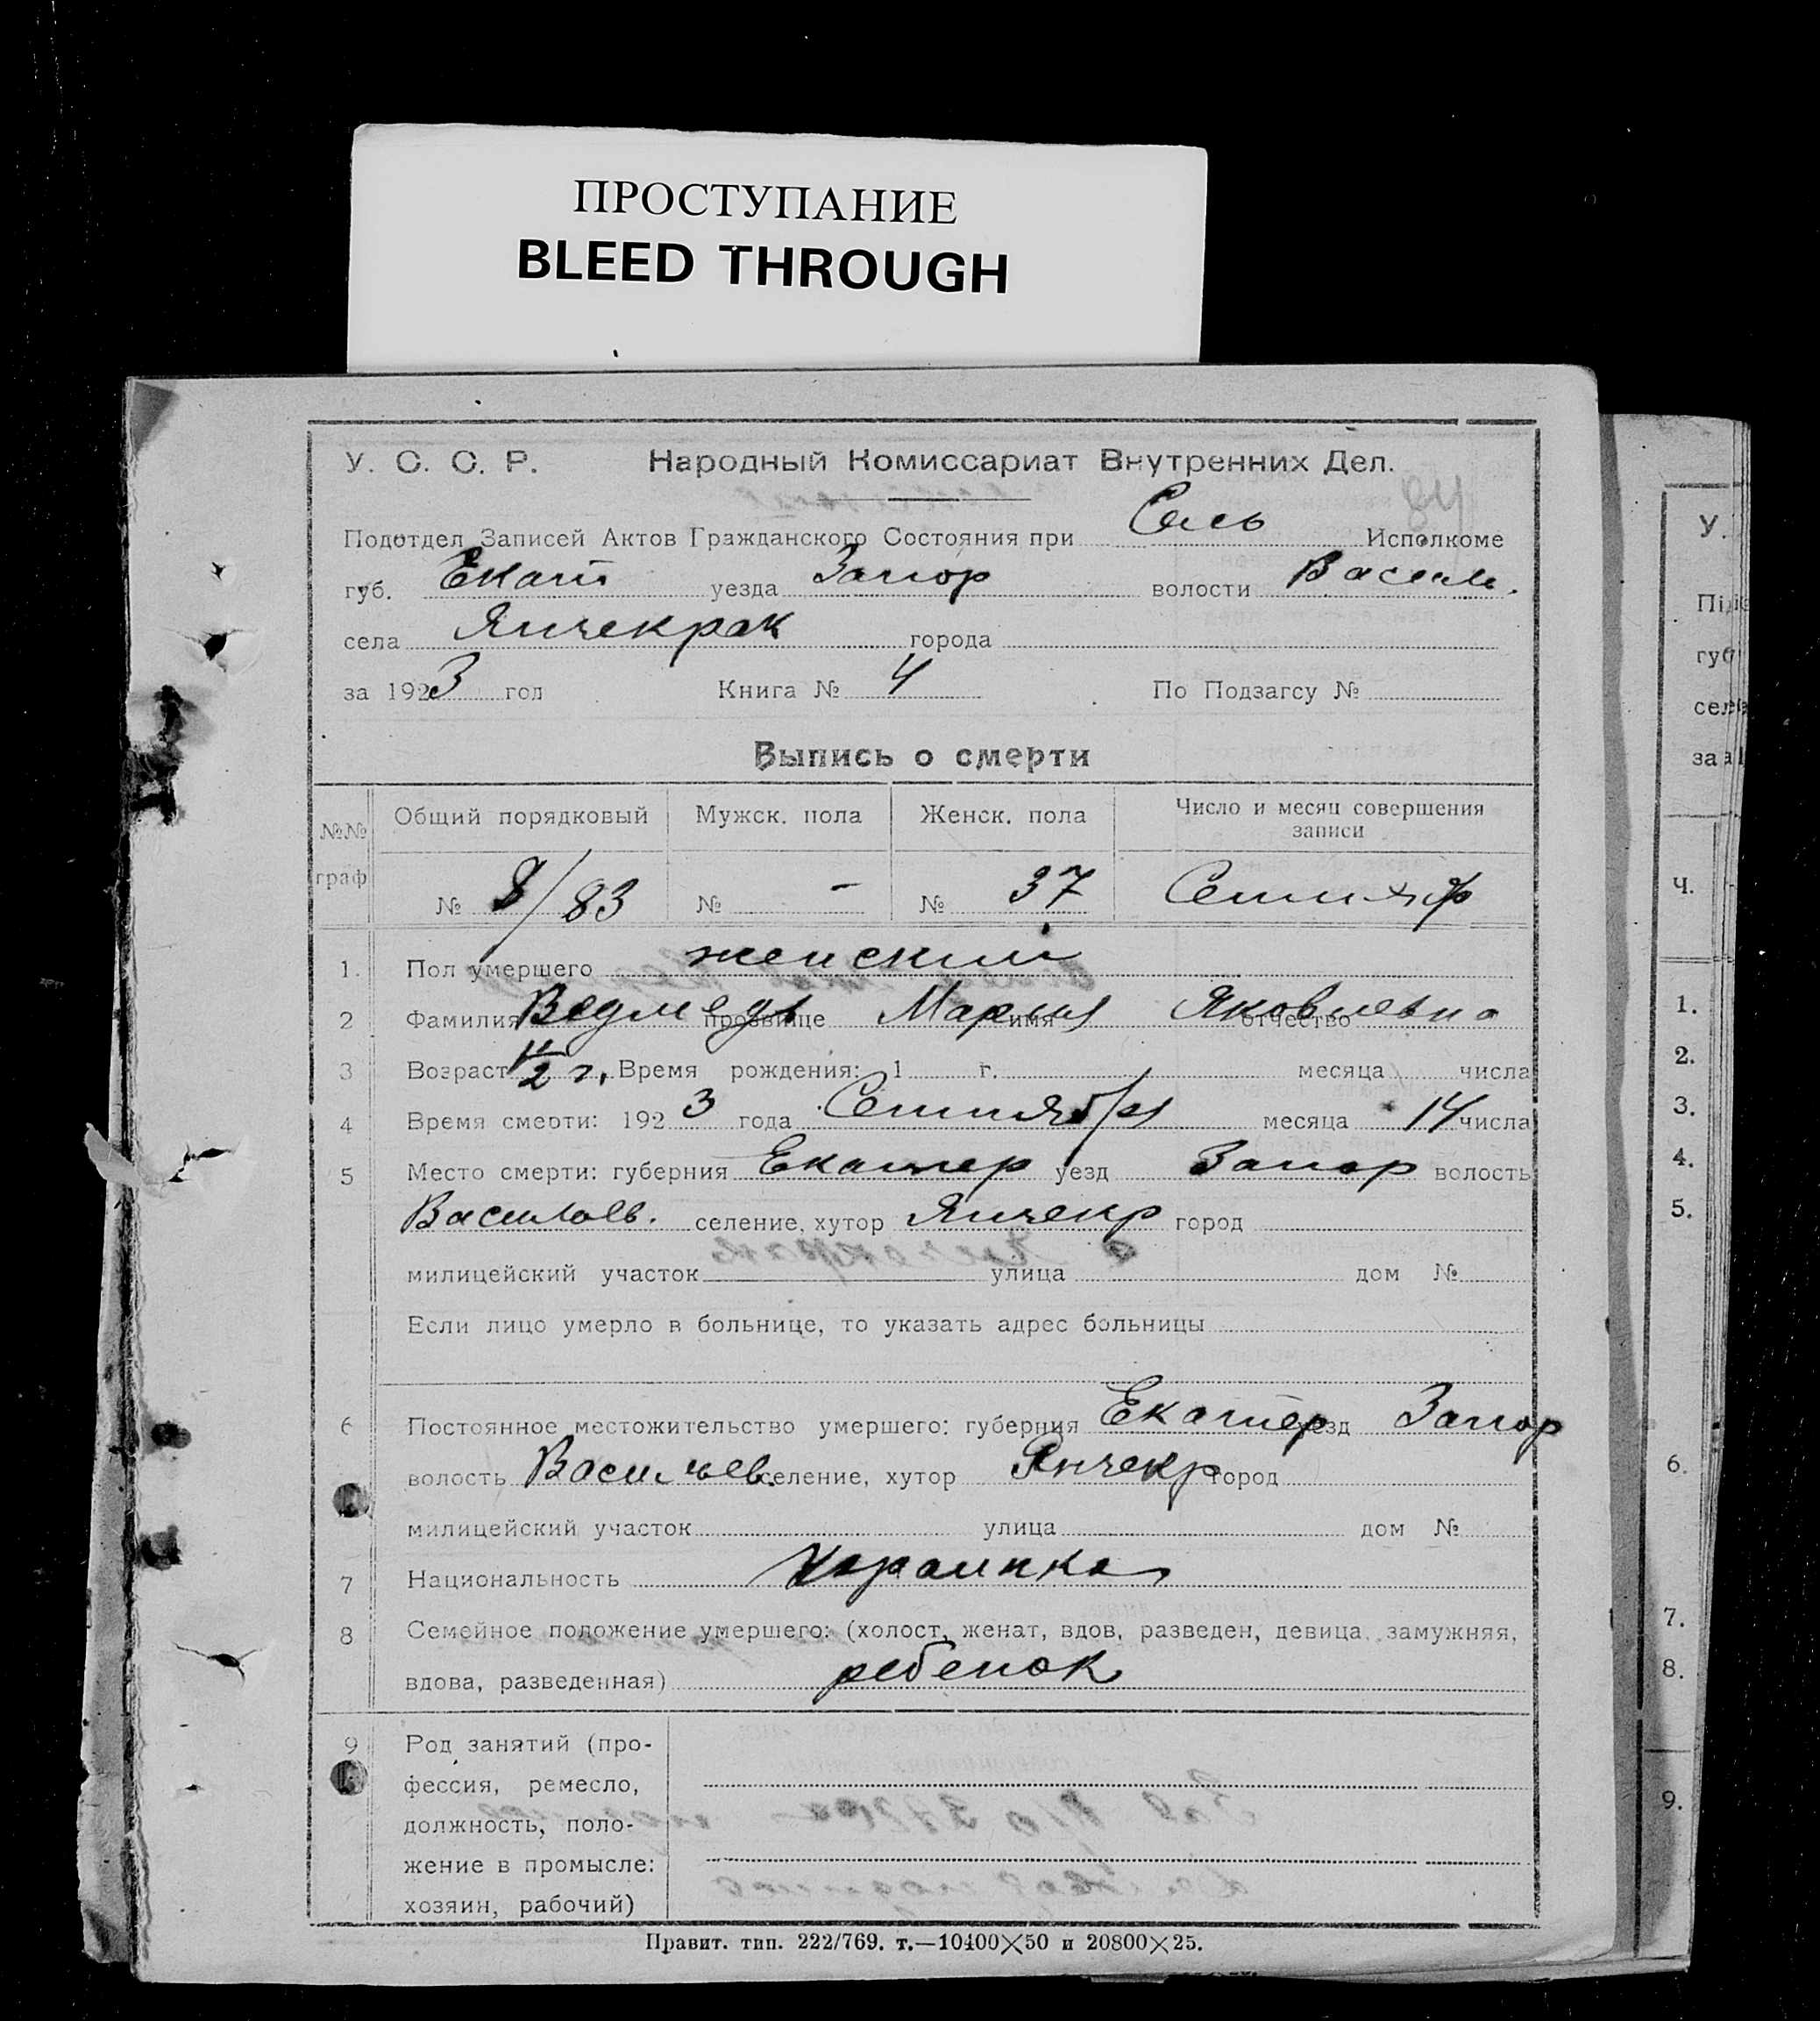 ПРОСТУПАНИЕ
BLEED THROUGH
У. С. С. Р. Народный Комиссариат Внутренних Дел.
Подотдел Записей Актов Гражданского Состояния при Сель Исполкоме
губ. Екат уезда Запор волости Васил.
села Янчекрак города
за 1923 год Книга № 4 По Подзагсу №
Выпись о смерти
№№ граф Общий порядковый Мужск. пола Женск. пола Число и месяц совершения записи
№ 8/83 № - № 37 Сентяб
1. Пол умершего женский
2 Фамилия Ведмедь прозвище Мария имя Яковлевна отчество
3 Возраст 1 1/2 г. Время рождения: 1 г. месяца числа
4 Время смерти: 1923 года Сентября месяца 14 числа
5 Место смерти: губерния Екатер уезд Запор волость
Васильев. селение, хутор Янчекр город
милицейский участок улица дом №
Если лицо умерло в больнице, то указать адрес больницы
6 Постоянное местожительство умершего: губерния Екатер уезд Запор
волость Васильев. селение, хутор Янчекр город
милицейский участок улица дом №
7 Национальность
8 Семейное положение умершего: (холост, женат, вдов, разведен, девица, замужняя,
вдова, разведенная) ребенок
9 Род занятий (про-
фессия, ремесло,
должность, поло-
жение в промысле:
хозяин, рабочий)
Правит. тип. 222/769. т.—10400×50 и 20800×25.
У.
Пі
губ
сел
за 1
Ч.
1.
2.
3.
4.
5.
6.
7.
8.
9.